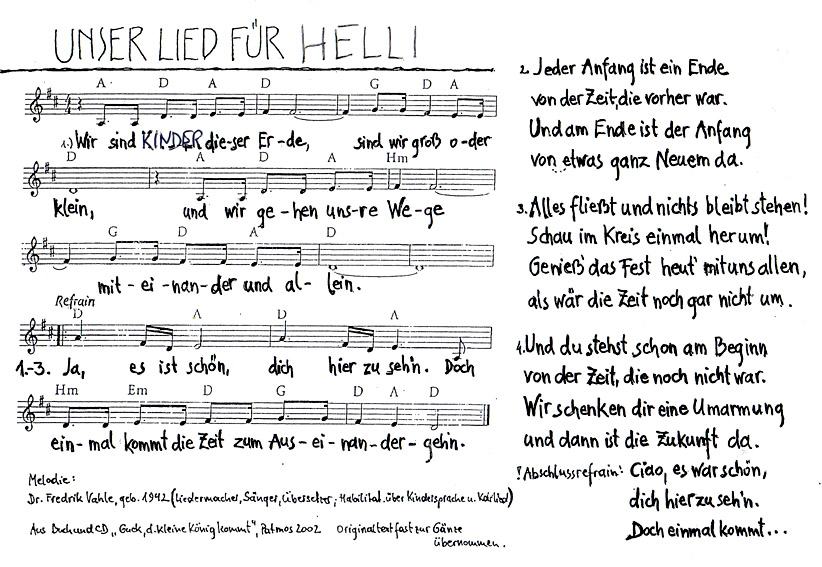 UNSER LIED FÜR HELLI
A D A D G D A
1.) Wir sind KINDER die-ser Er-de, sind wir groß o-der
D A D A Hm
klein, und wir ge-hen uns-re We-ge
G D A D
mit-ei-nan-der und al-lein.
Refrain
D A D A
1.-3. Ja, es ist schön, dich hier zu seh'n. Doch
Hm Em D G D A D
ein-mal kommt die Zeit zum Aus-ei-nan-der-geh'n.
Melodie:
Dr. Fredrik Vahle, geb. 1942 (Liedermacher, Sänger, Übersetzer; Habilitat. über Kindersprache u. Kdrlied)
Aus Buch und CD „Guck, d. kleine König kommt", Patmos 2002 Originaltext fast zur Gänze
übernommen.
2. Jeder Anfang ist ein Ende
von der Zeit, die vorher war.
Und am Ende ist der Anfang
von etwas ganz Neuem da.
3. Alles fließt und nichts bleibt stehen!
Schau im Kreis einmal herum!
Genieß' das Fest heut' mit uns allen,
als wär die Zeit noch gar nicht um.
4. Und du stehst schon am Beginn
von der Zeit, die noch nicht war.
Wir schenken dir eine Umarmung
und dann ist die Zukunft da.
! Abschlussrefrain: Ciao, es war schön,
dich hier zu seh'n.
Doch einmal kommt...